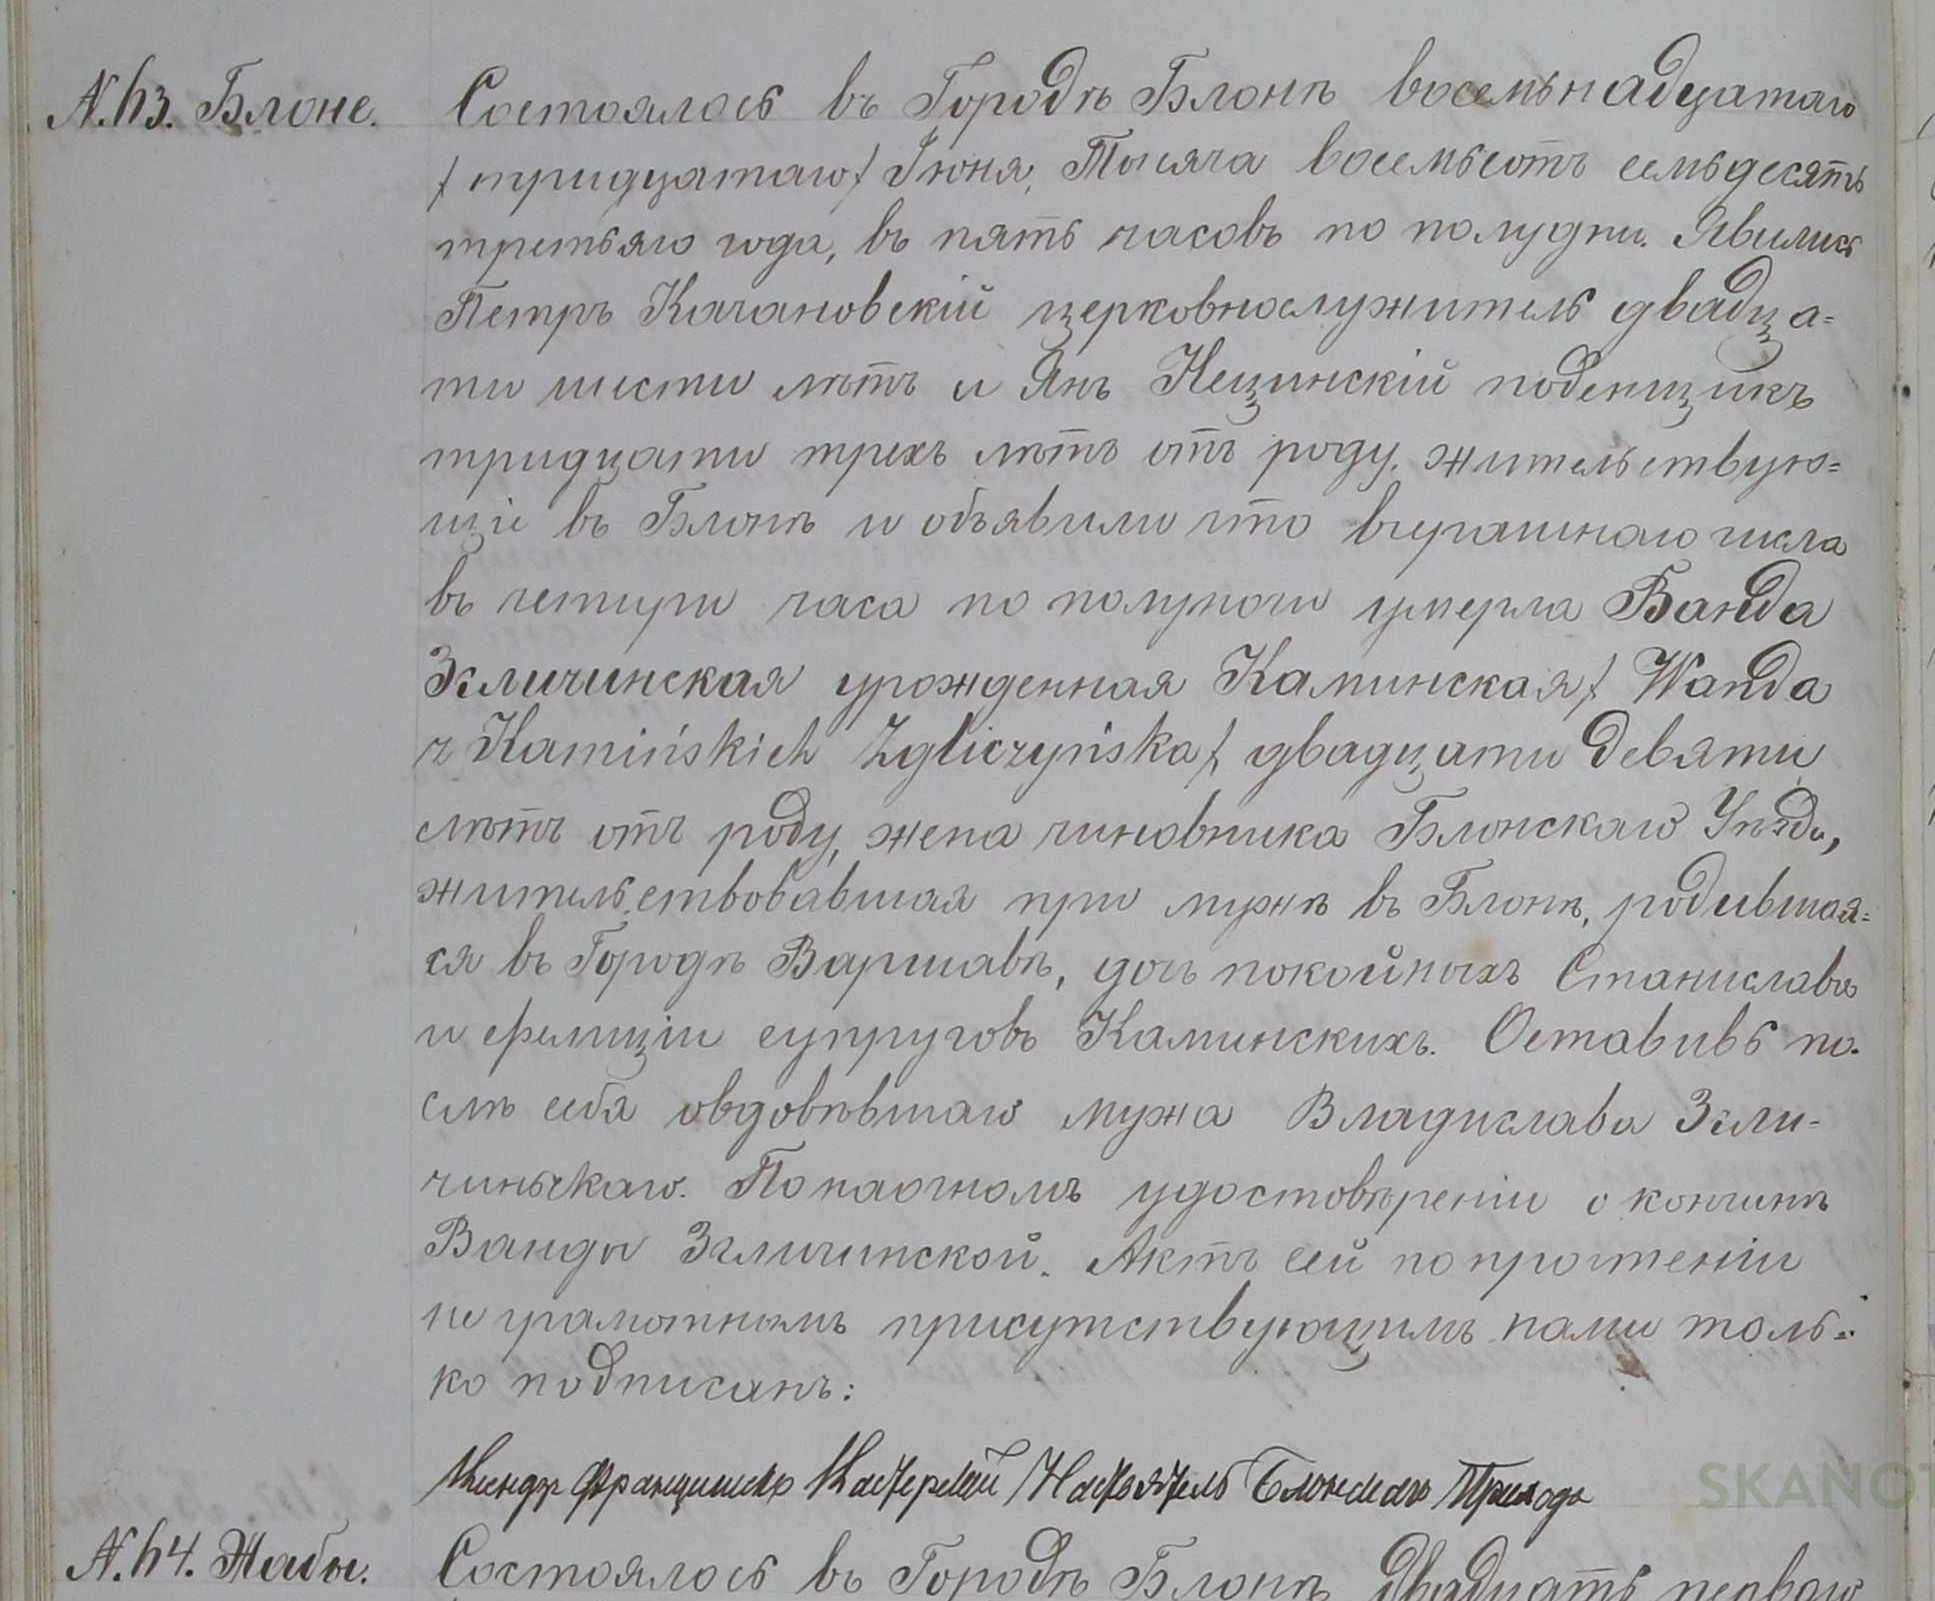 N. 63. Блоне.
Состоялось въ Городѣ Блонѣ восемьнадцатаго
/тридцатаго/ Іюня, Тысяча восемьсотъ семьдесятъ
третьяго года, въ пять часовъ по полудни. Явились
Петръ Качановскій церковнослужитель двадца=
ти шести лѣтъ и Янъ Нецинскій поденщикъ
тридцати трехъ лѣтъ отъ роду, жительствую=
щіе въ Блонѣ и объявили что вчерашнаго числа
въ четыри часа по полуночи умерла Ванда
Згличинская урожденная Каминская/ Wanda
z Kamińskich Zgliczyńska/ двадцати девяти
лѣтъ отъ роду, жена чиновника Блонскаго Уѣзда,
жительствовавшая при мужѣ въ Блонѣ, родившая=
ся въ Городѣ Варшавѣ, дочь покойныхъ Станислава
и Фелиціи супруговъ Каминскихъ. Оставивъ по-
слѣ себя овдовѣвшаго мужа Владислава Згли-
чиньскаго. По наочномъ удостовѣреніи о кончинѣ
Ванды Згличинской. Актъ сей по прочтеніи
не грамотнымъ присутствующимъ нами толь=
ко подписанъ:
Ксендзъ Францишекъ Настоятель Блонскаго Прихода
N. 64. Жабы.
Состоялось въ Городѣ Блонѣ Двадцать перваго
SKANOT